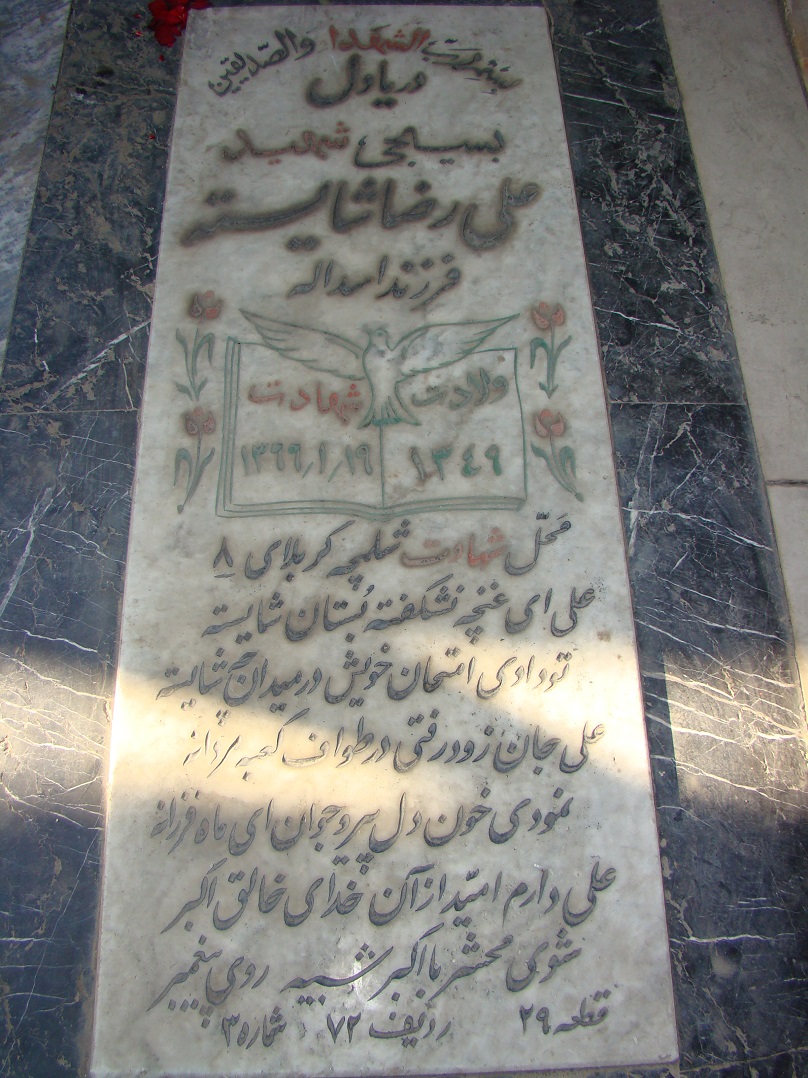 بسم رب الشهدا والصدیقین
دریادل
بسیجی شهید
علی رضا شایسته
فرزند اسداله
ولادت شهادت
۱۳۴۹ ۱۳۶۶/۱/۱۹
محلّ شهادت شلمچه کربلای ۸
علی ای غنچه نشکفته بُستان شایسته
تو دادی امتحان خویش در میدان حج شایسته
علی جان زود رفتی در طواف کعبه مردانه
نمودی خون دل پیر و جوان ای ماه فرزانه
علی دارم امیّد از آن خُدای خالق اکبر
شوی محشر با اکبر شبیه روی پیغمبر
قطعه ۲۹ ردیف ۷۲ شماره ۳